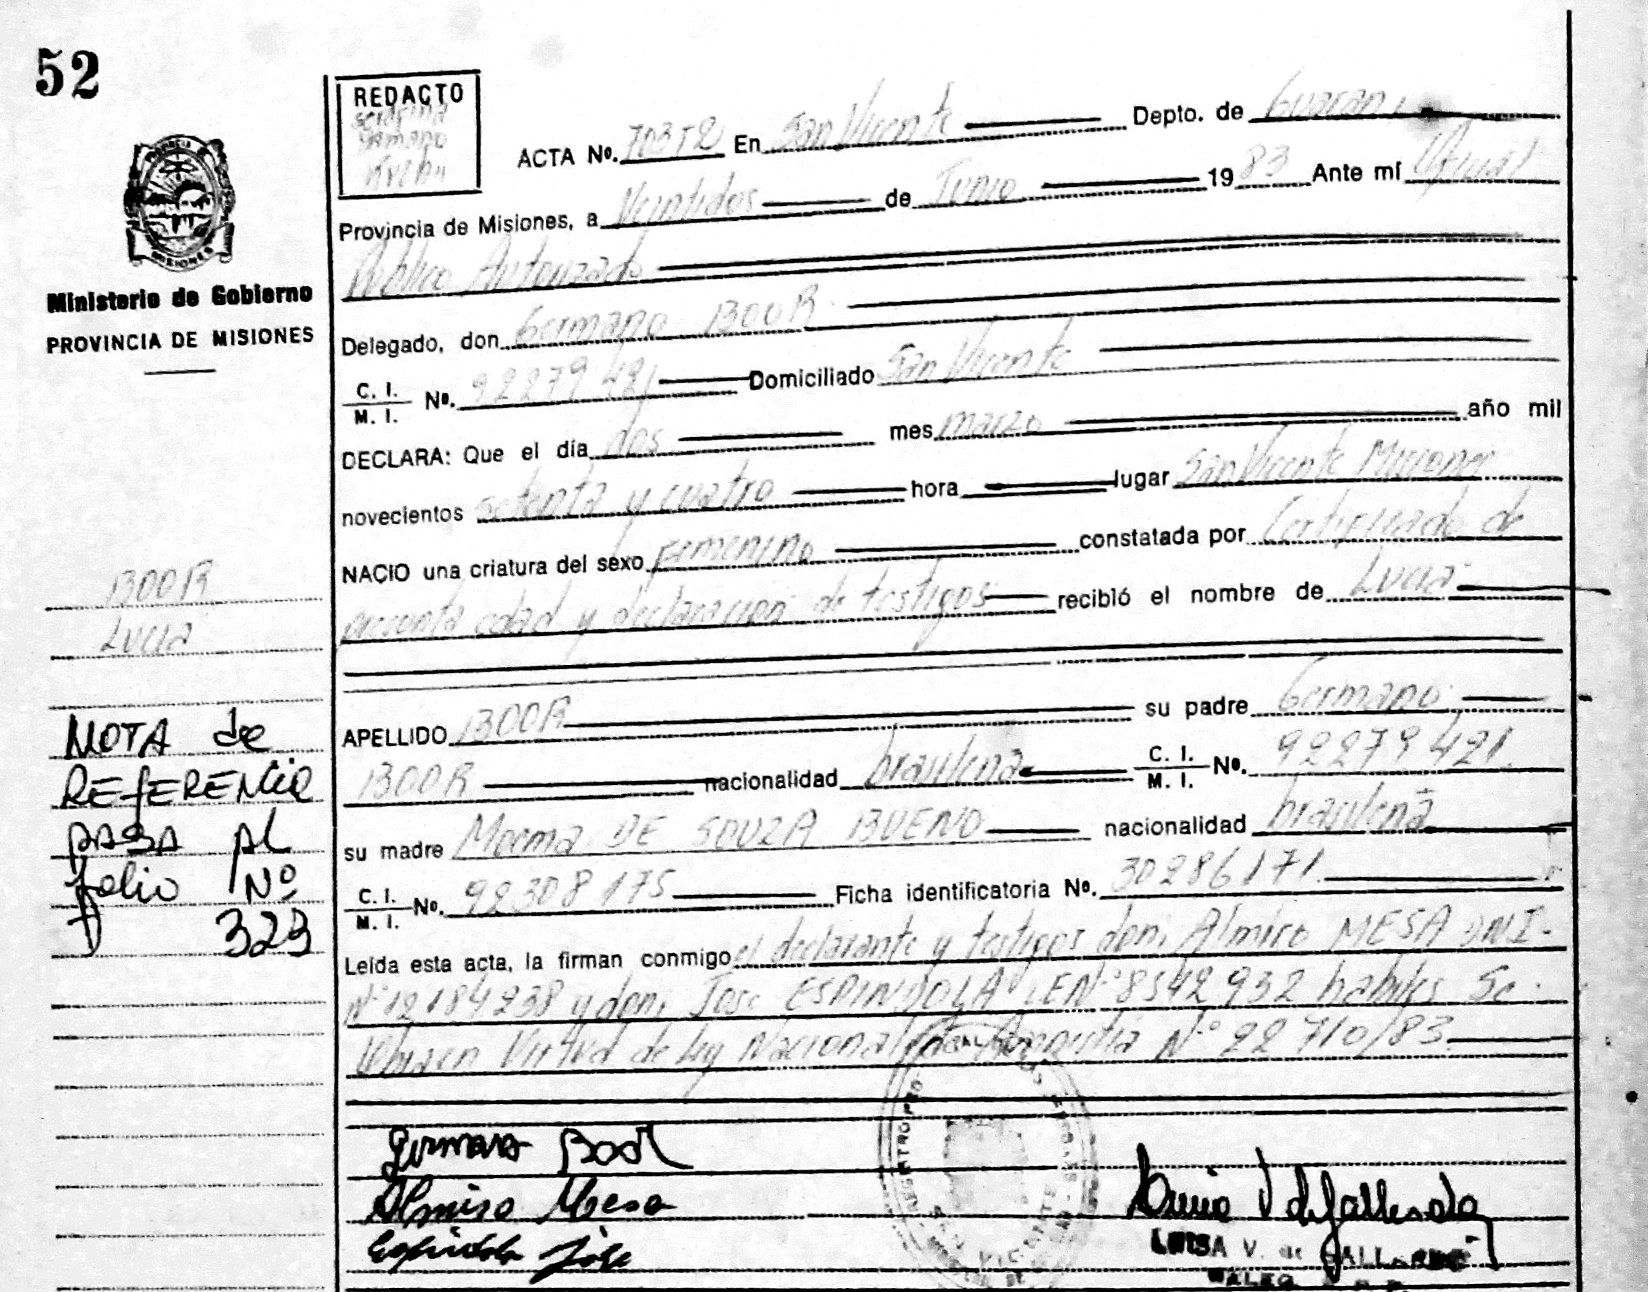 52
REDACTO
ACTA No. En San Vicente Depto. de Guarani
Provincia de Misiones, a Veintidos de Junio 1983 Ante mí Oficial
Público Autorizado
Delegado, don Germano BOOR
C. I. / M. I. No. 92279421 Domiciliado San Vicente
DECLARA: Que el día dos mes marzo año mil
novecientos setenta y cuatro hora lugar San Vicente Misiones
NACIO una criatura del sexo Femenino constatada por Certificado de
presunta edad y declaración de testigos recibió el nombre de Lucia
APELLIDO BOOR su padre Germano
BOOR nacionalidad brasileña C. I. / M. I. No. 92279421
su madre DE SOUZA BUENO nacionalidad brasileña
C. I. / M. I. No. 92308175 Ficha identificatoria No. 30286171
Leída esta acta, la firman conmigo el declarante y testigos don, Almiro MESA DNI.
Nº 12184238 y don, Jose ESPINDOLA LE Nº 8542932 habiles Se
labra en Virtud de Ley Nacional de Amnistia Nº 22710/83
Germano Boor
Almiro Mesa
Espindola José
LUISA V. de GALLARDO
SAN VICENTE
PROVINCIA DE MISIONES
Ministerio de Gobierno
PROVINCIA DE MISIONES
BOOR
Lucia
NOTA de
REFERENCIA
PASA AL
folio Nº
323